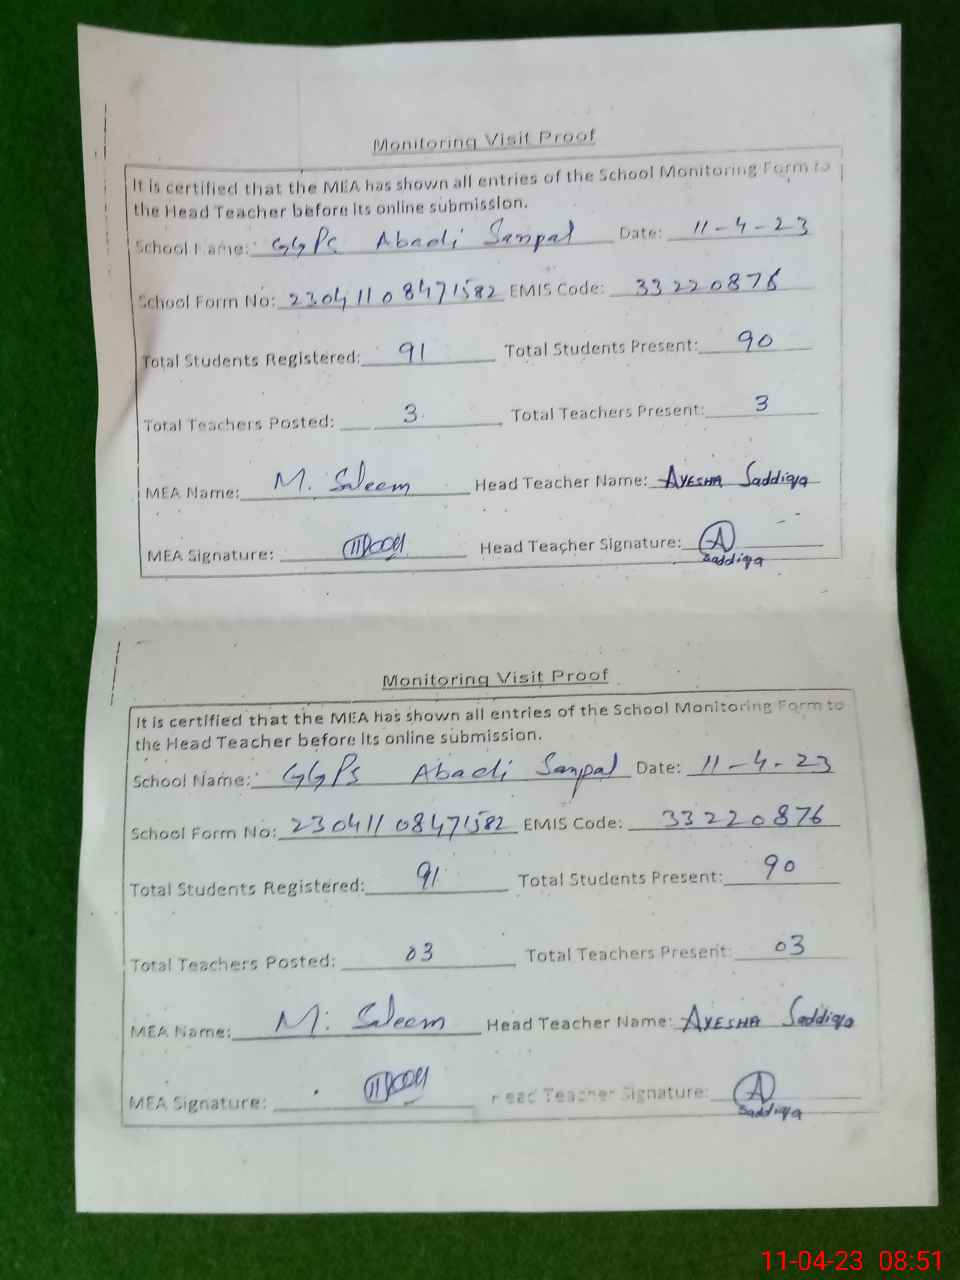 Monitoring Visit Proof
It is certified that the MEA has shown all entries of the School Monitoring Form to
the Head Teacher before its online submission.
School Name: GGPS Abadi Sanpal Date: 11-4-23
School Form No: 23041108471582 EMIS Code: 33220876
Total Students Registered: 91 Total Students Present: 90
Total Teachers Posted: 3 Total Teachers Present: 3
MEA Name: M. Saleem Head Teacher Name: Ayesha Saddiqa
MEA Signature: Head Teacher Signature: A
Saddiqa
Monitoring Visit Proof
It is certified that the MEA has shown all entries of the School Monitoring Form to
the Head Teacher before its online submission.
School Name: GGPS Abadi Sanpal Date: 11-4-23
School Form No: 23041108471582 EMIS Code: 33220876
Total Students Registered: 91 Total Students Present: 90
Total Teachers Posted: 03 Total Teachers Present: 03
MEA Name: M. Saleem Head Teacher Name: Ayesha Saddiqa
MEA Signature: Head Teacher Signature: A
Saddiqa
11-04-23 08:51